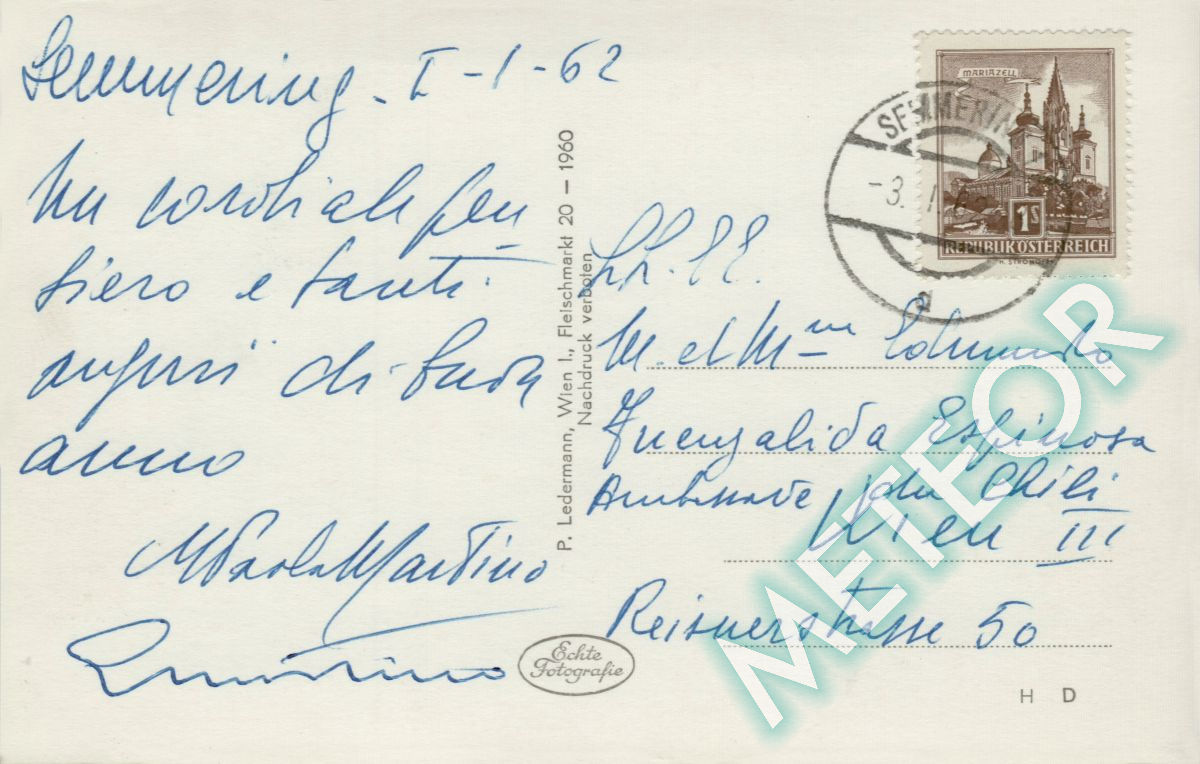 Semmering - I - 1 - 62
Un cordiale pen
siero e tanti
auguri di buon
anno
M Paola Martino
P. Ledermann, Wien I., Fleischmarkt 20 – 1960
Nachdruck verboten
Echte
Fotografie
MARIAZELL
1S
REPUBLIK ÖSTERREICH
SEMMERIN
-3. I
a
LL. EE.
M. et Mme Edmundo
Fuenzalida Espinosa
Ambassade du Chili
Wien III
Reisnerstrasse 50
H D
METEOR